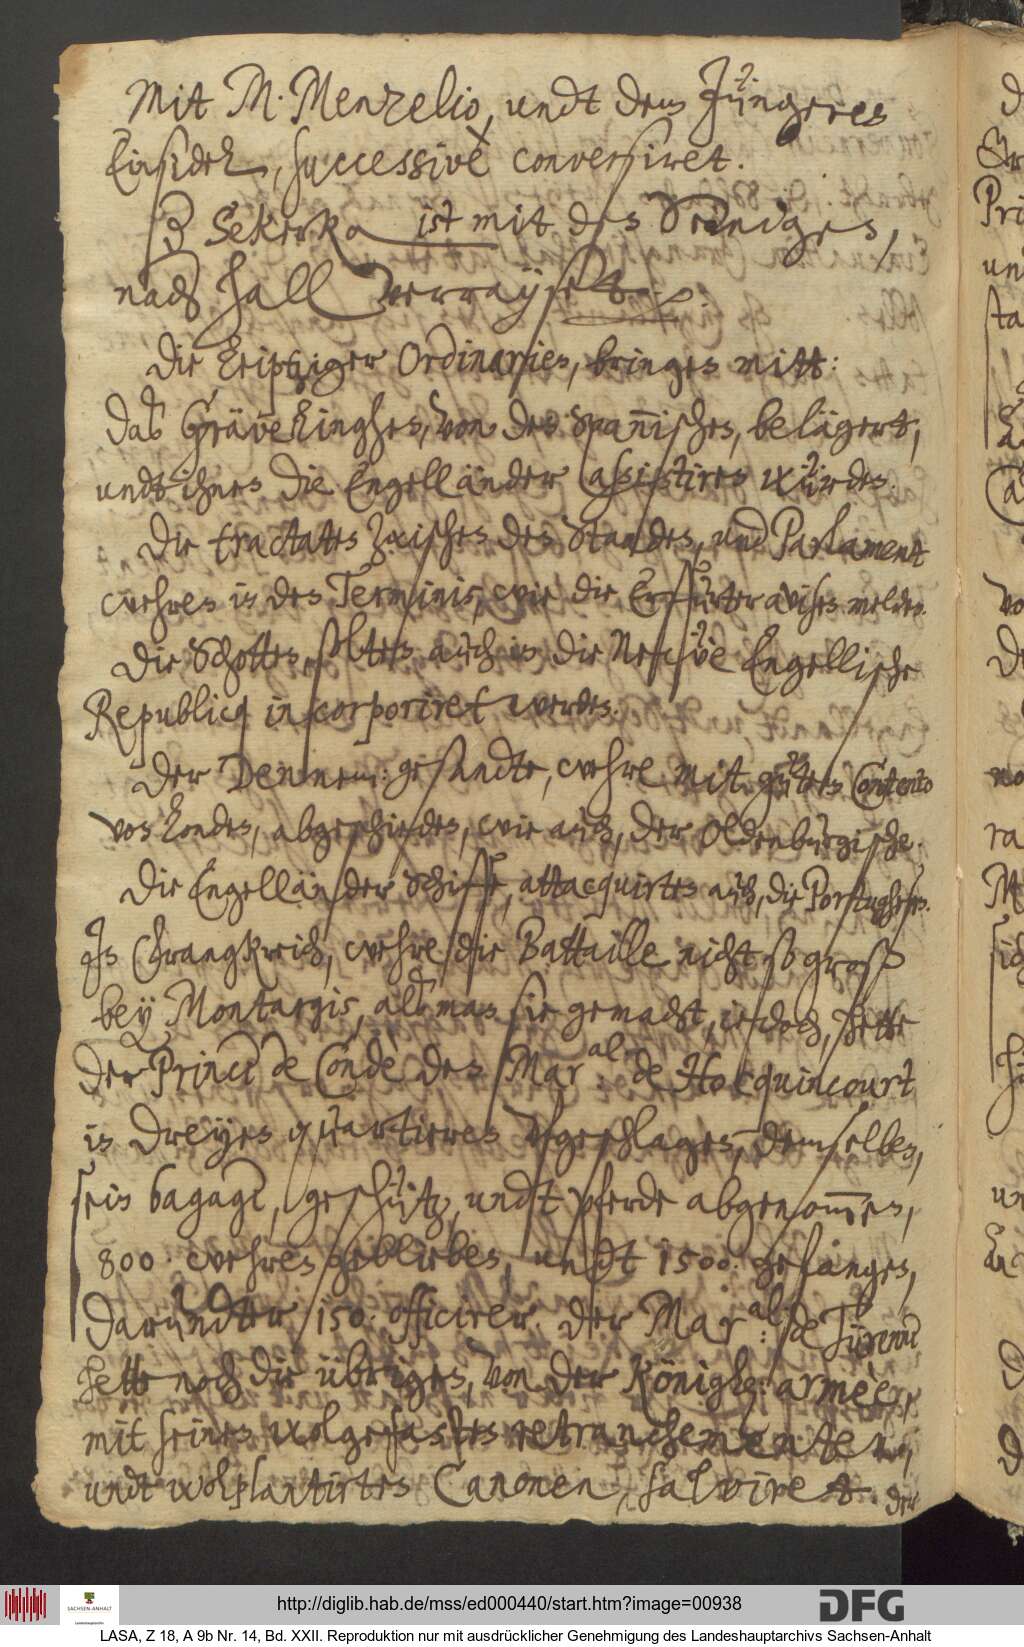 mit M. Menzelio, undt dem Jüngeren
Einsidel, successivè conversiret.
J Sekerka ist mit den Seinigen,
nach Hall verrayset.
Die Leiptziger Ordinarien, bringen mitt:
daß Gräve Linghen, von den Spannischen, belägert,
undt ihnen die Engelländer assistiren würden.
Die tractaten zwischen den Standen, und Parlament
wehren in den Terminis, wie die Erffurter avisen melden.
Die Schotten, solten auch in die Newe Engellische
Republicq incorporiret werden.
Der Dennem: gesandte, wehre mit guten Contento
von Londen, abgeschieden, wie auch, der Oldenburgische.
Die Engelländer Schiffe, attacquirten auch, die Portughesen.
In Franckreich, wehre die Battaille nicht so groß
bey Montargis, alß man sie gemacht, iedoch, hette
der Prince de Condè den Mar.al de Hocquincourt
in dreyen quartieren geschlagen, demselben,
sein bagage, geschütz, undt pferde abgenommen,
800 wehren geblieben, undt 1500 gefangen,
darundter 150 officirer. Der Mar:al de Türenne
hette noch die übrigen, von der Königl: armèe,
mit seinen wolgefasten retranchementen,
undt wolplantirten Canonen, salviret. der
http://diglib.hab.de/mss/ed000440/start.htm?image=00938
DFG
SACHSEN-ANHALT
LASA, Z 18, A 9b Nr. 14, Bd. XXII. Reproduktion nur mit ausdrücklicher Genehmigung des Landeshauptarchivs Sachsen-Anhalt